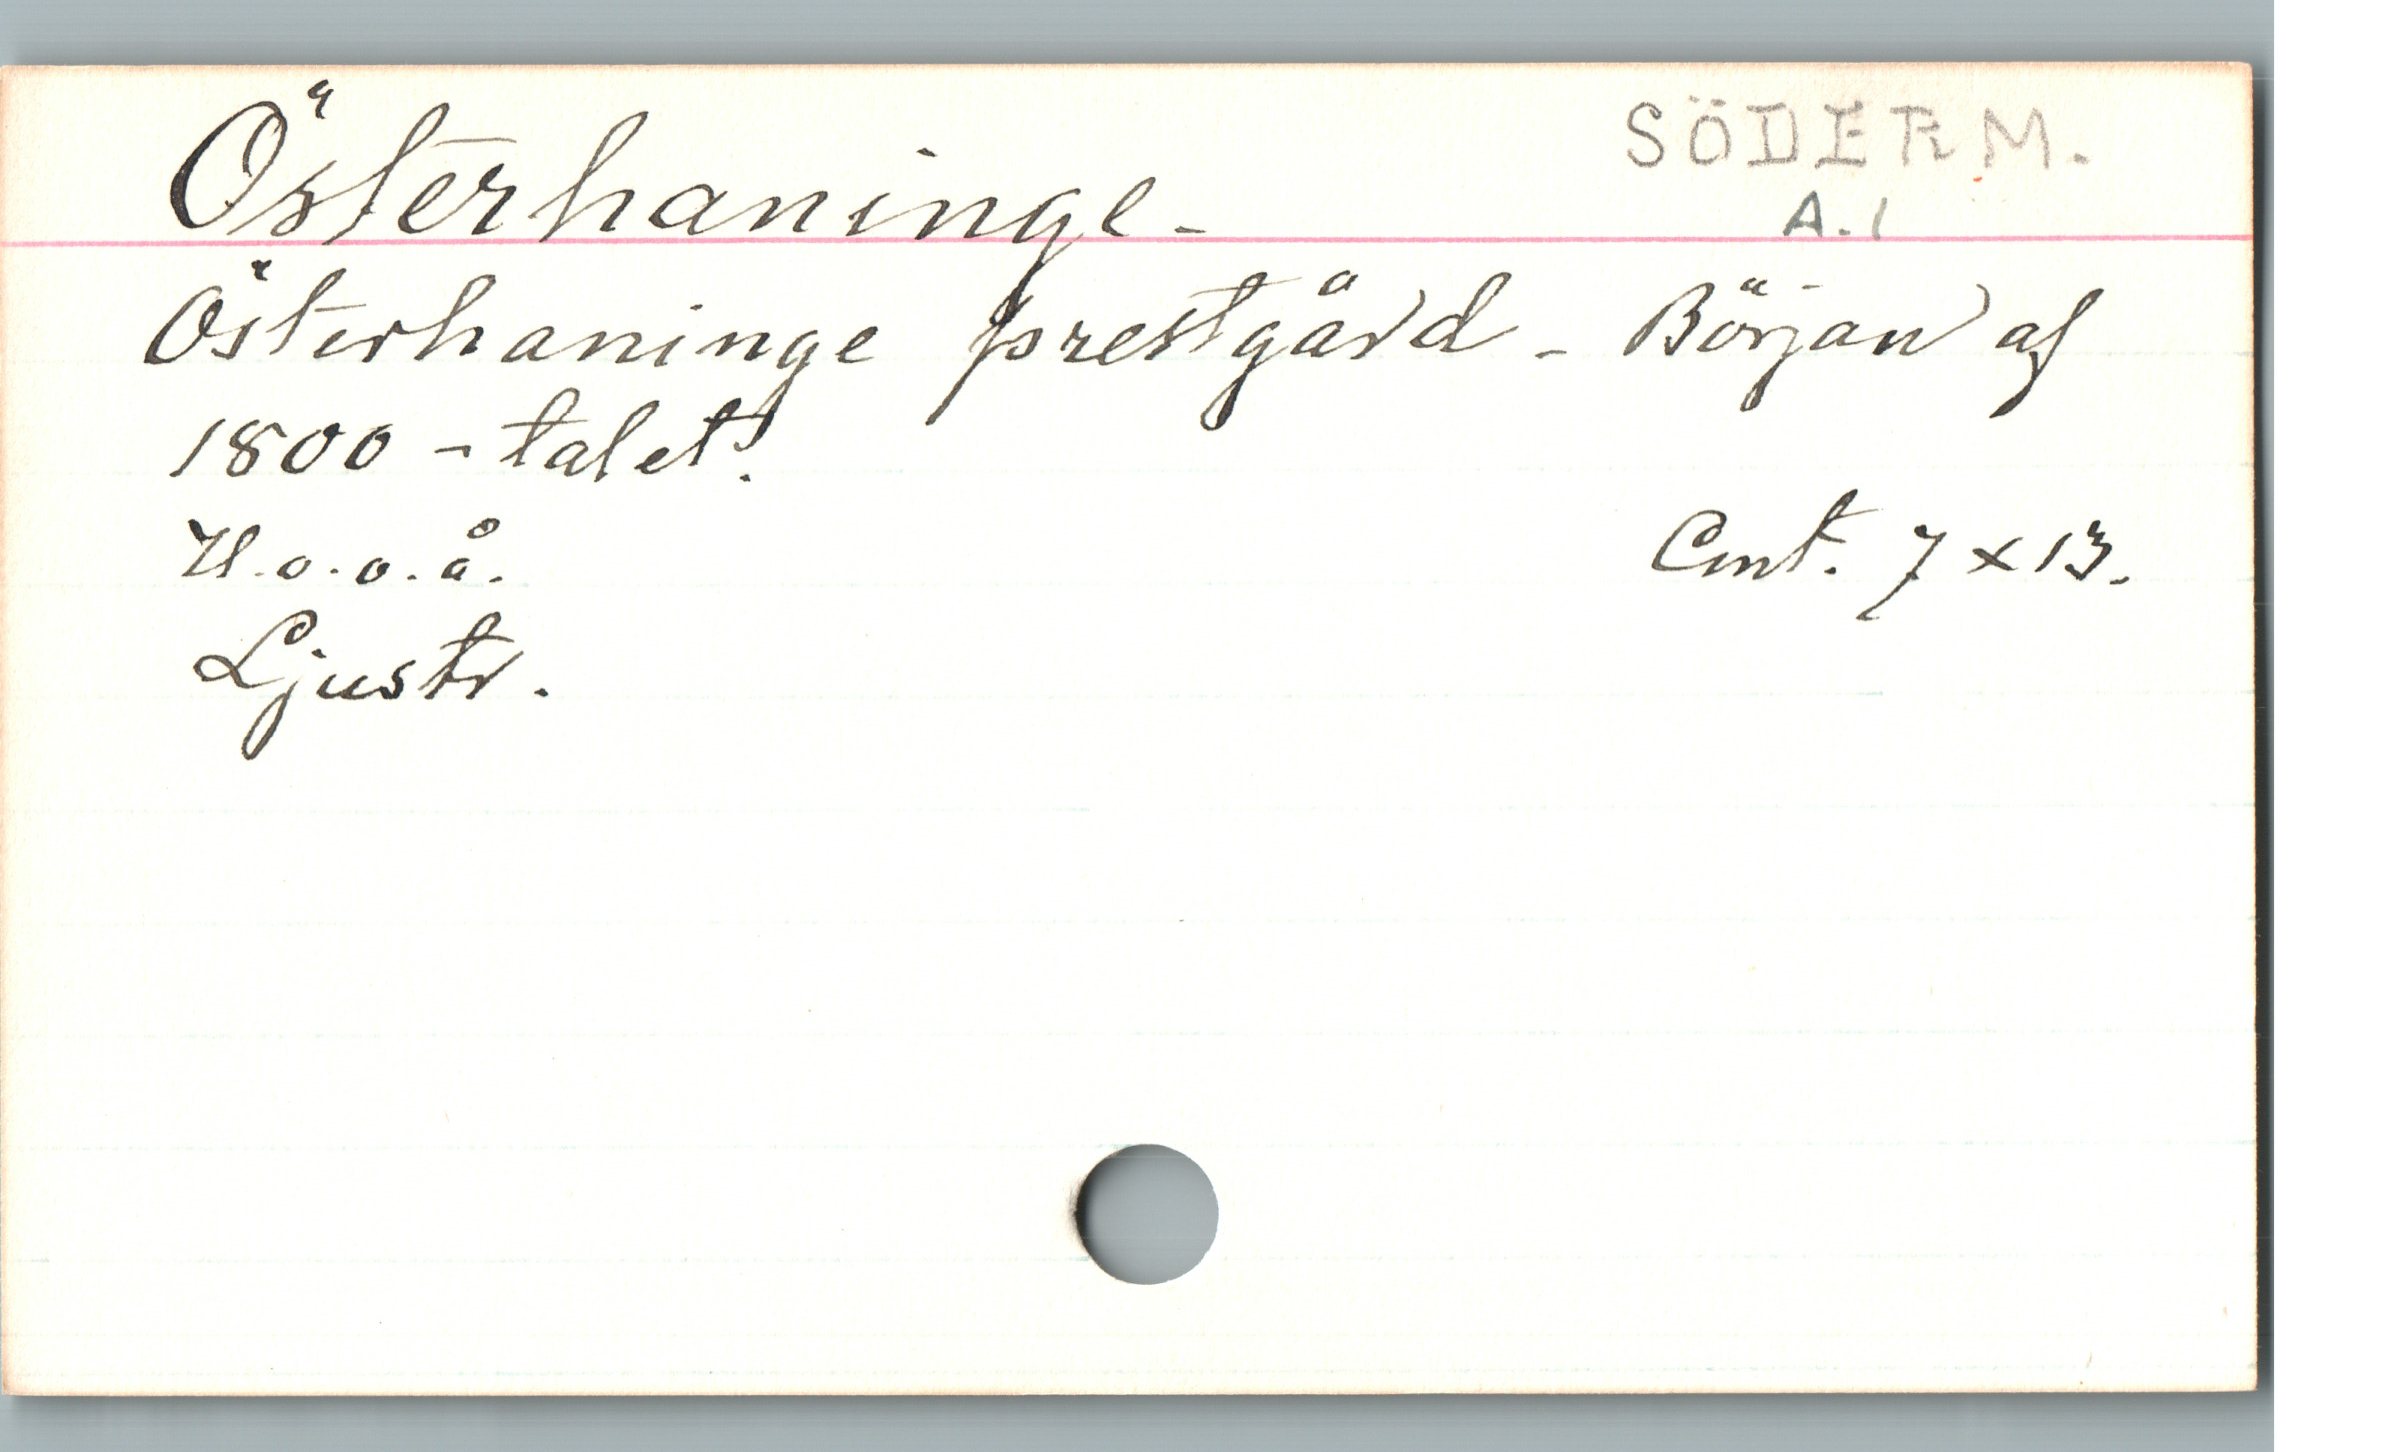 Österhaninge-
SÖDERM.
A.1
Österhaninge prestgård - Början af
1800-talet.
U.o.o.å.
Cmt. 7 x 13.
Ljustr.